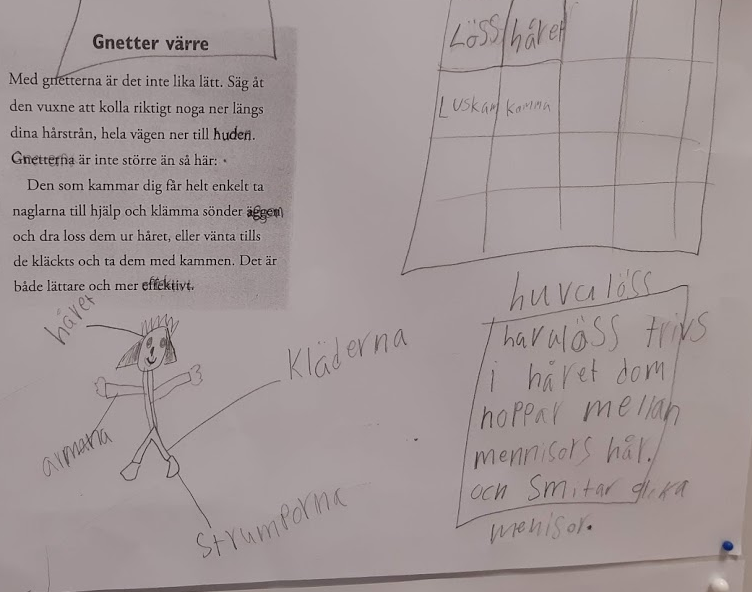 Gnetter värre
Med gnetterna är det inte lika lätt. Säg åt
den vuxne att kolla riktigt noga ner längs
dina hårstrån, hela vägen ner till huden.
Gnetterna är inte större än så här: •
Den som kammar dig får helt enkelt ta
naglarna till hjälp och klämma sönder äggen
och dra loss dem ur håret, eller vänta tills
de kläckts och ta dem med kammen. Det är
både lättare och mer effektivt.
Löss håret
Luskam komma
håret
Kläderna
armarna
Strumporna
huvulöss
havulöss trivs
i håret dom
hoppar mellan
mennisors hår.
och Smitar
menisor.